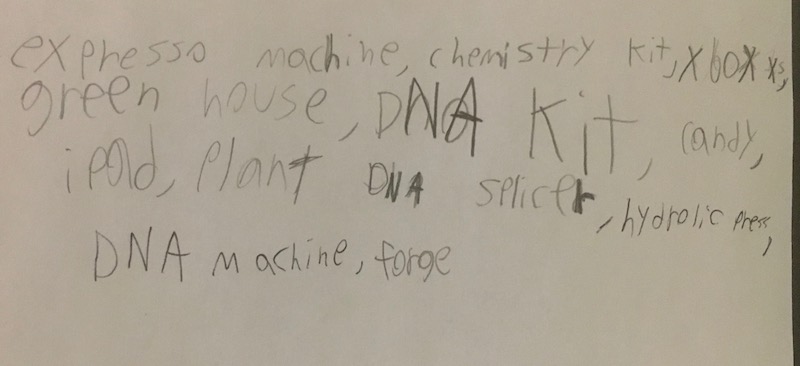 expresso machine, chemistry kit, xbox xs,
green house, DNA Kit, candy,
ipad, plant DNA splicer, hydrolic press,
DNA machine, forge